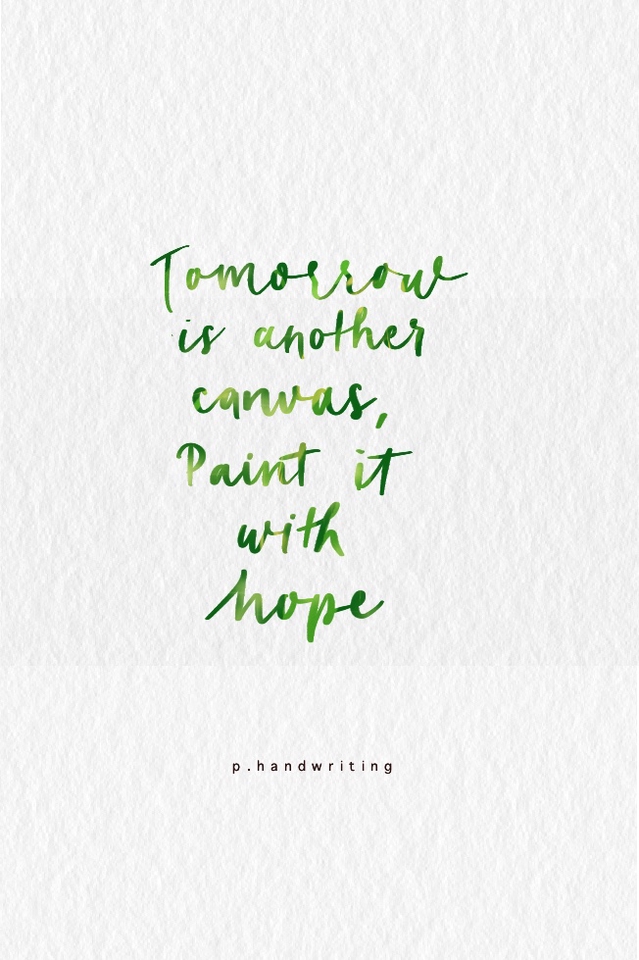 Tomorrow
is another
canvas,
Paint it
with
hope
p.handwriting